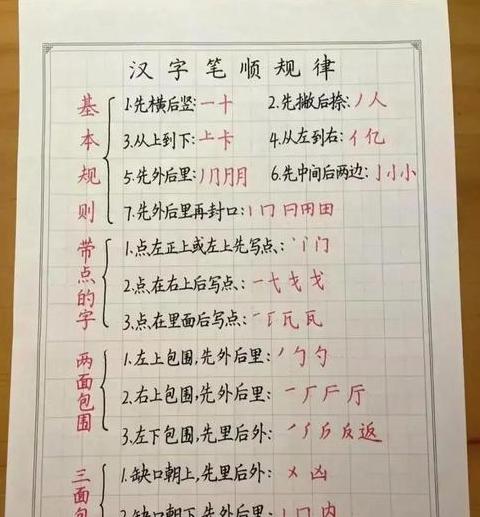 汉字笔顺规律
基本规则
1.先横后竖:一十 2.先撇后捺:丿人
3.从上到下:上卡 4.从左到右:亻亿
5.先外后里:丿冂月月 6.先中间后两边:亅小小
7.先外后里再封口:丨冂冃用田
带点的字
1.点左正上或左上先写点:丶丨门
2.点在右上后写点:一弋戋戈
3.点在里面后写点:一瓦瓦
两面包围
1.左上包围,先外后里:丿勹勺
2.右上包围,先外后里:一厂厂厅
3.左下包围,先里后外:丿厂反返
三面包
1.缺口朝上,先里后外:乂凶
2.缺口朝下,先外后里:丨冂内